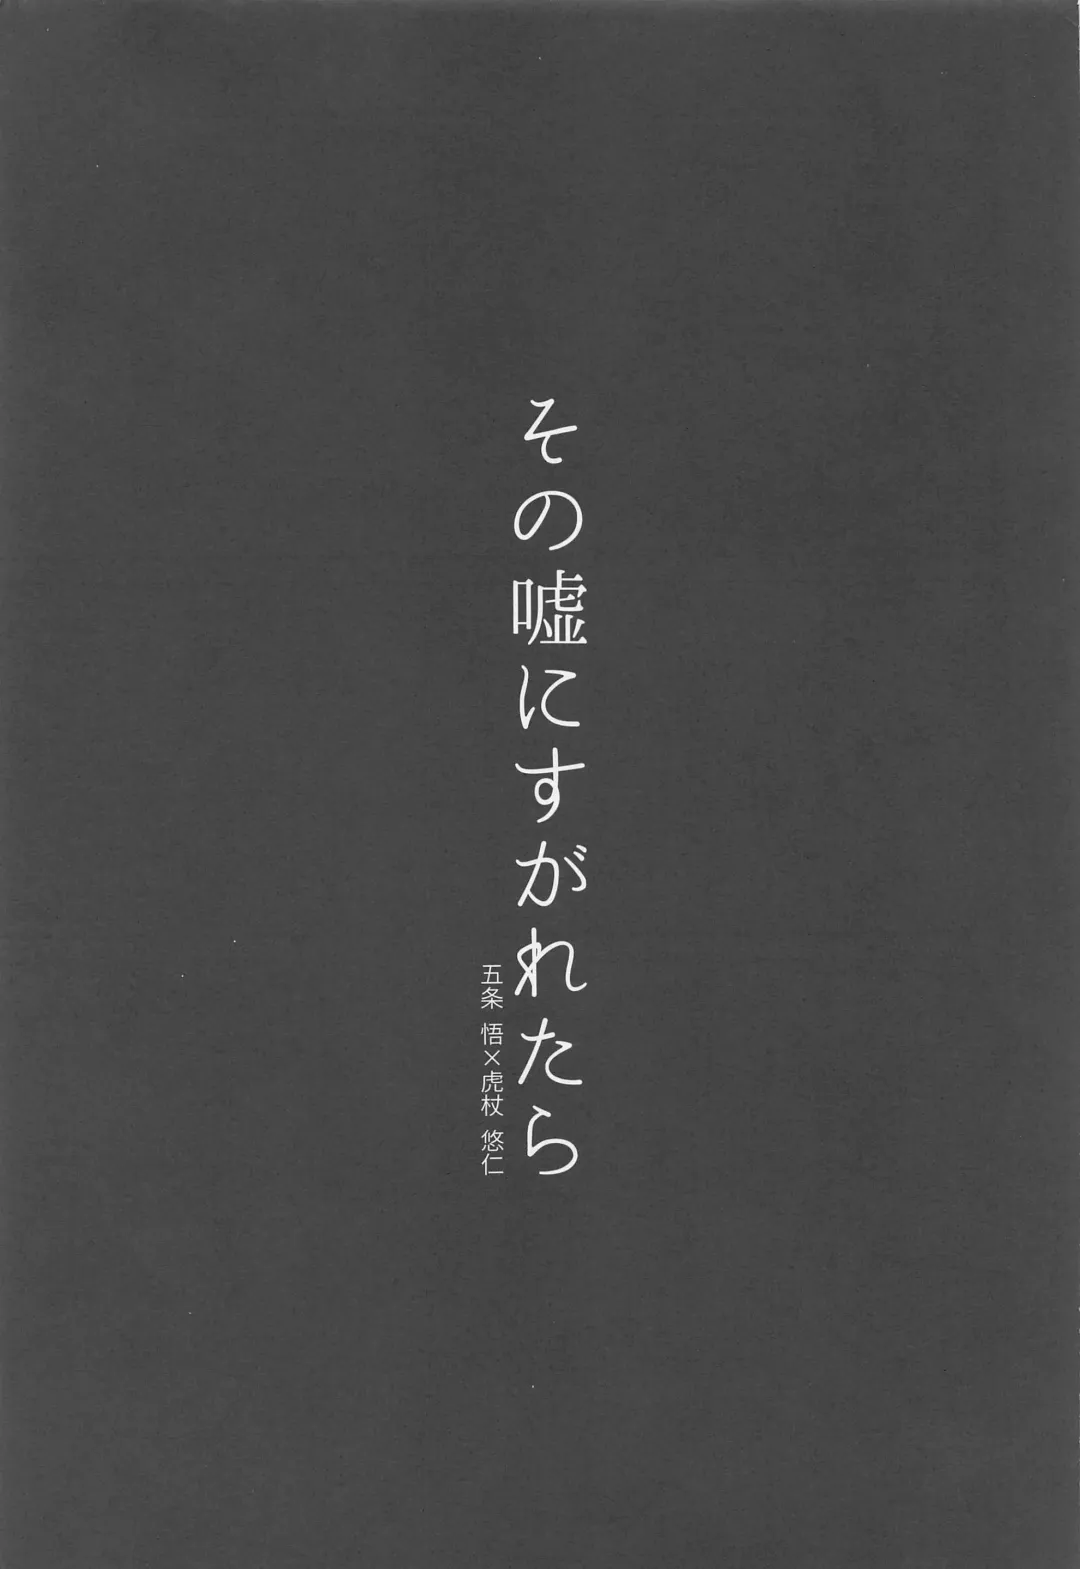 その嘘にすがれたら
五条 悟×虎杖 悠仁